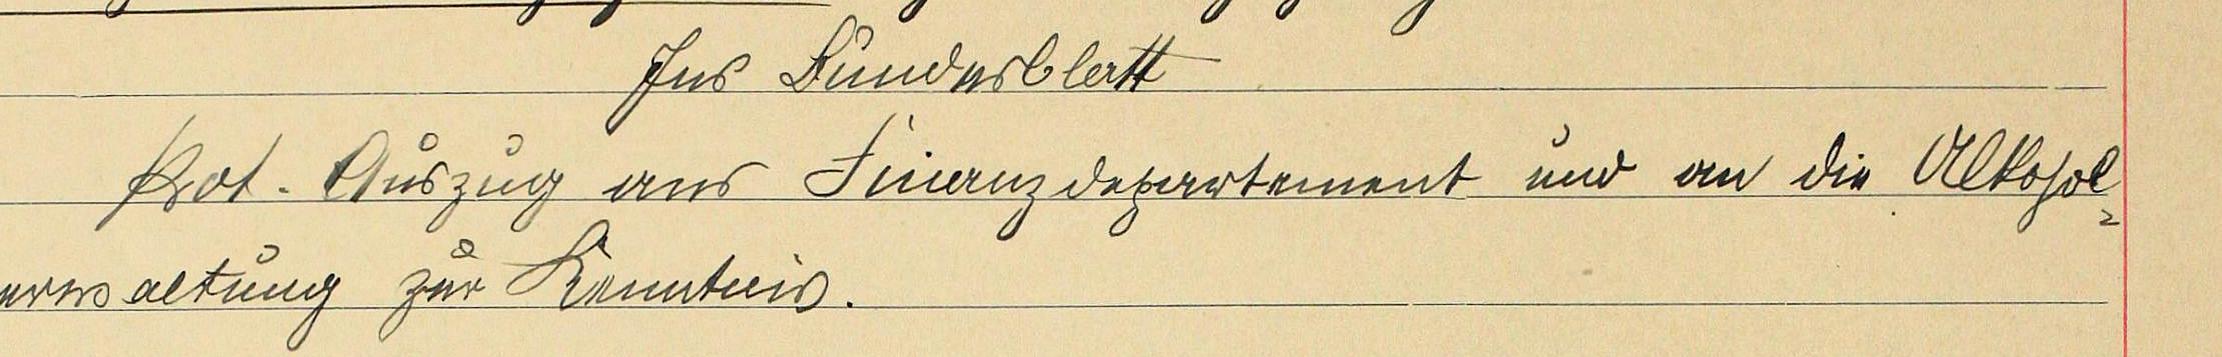 Ins Bundesblatt
Prot. Auszug ans Finanzdepartement und an die Alkohol-
erwaltung zur Kenntnis.